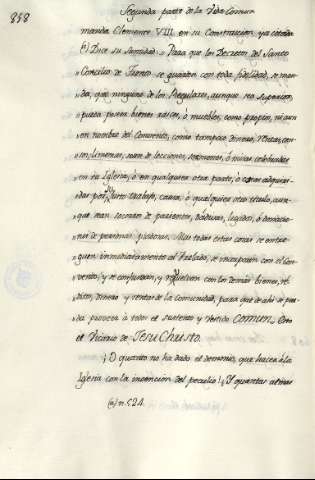 858
Segunda parte de la Vida Comun
manda Clemente VIII. en su Constitucion ya citada
(a) Dice su Santidad: " Para que los Decretos del Santo
" Concilio de Trento se guarden con toda fidelidad, se man-
" da, que ninguno de los Regulares, aunque sea Superior,
" pueda poseer bienes raices, ó muebles, como propios, ni aun
" en nombre del Convento, como tampoco dineros, rentas, cen-
" sos, limosnas, sean de lecciones, sermones, ó misas celebradas
" en su Iglesia, ó en qualquier otra parte, ó sean adquiri-
" das por justo trabajo, causa, ó qualquiera otro titulo, aun-
" que sean socorros de parientes, dadivas, legados, ó donacio-
" nes de personas piadosas. Mas todas estas cosas se entre-
" guen inmediatamente al Prelado, se incorporen con el Con-
" vento, y se confundan, y resuelvan con los demás bienes, ré-
" ditos, dineros y rentas de la comunidad, para que de ahi se pue-
" da proveer á todos el sustento y vestido COMUN. Esto
el Vicario de JESU CHRISTO.
¡O quanto no ha dado el demonio, que hacer á la
Iglesia con la invencion del peculio! ¡Y quantas almas
(a) n. 524.